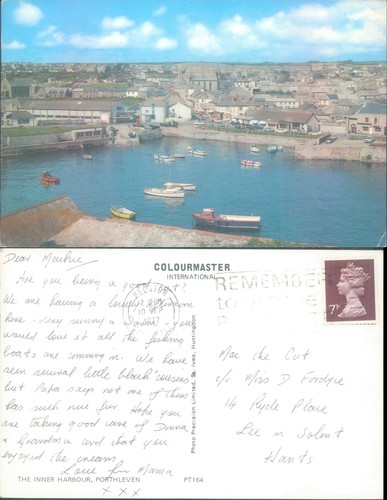 Dear
COLOURMASTER
INTERNATIONAL
Are you being a good cat?
We are having a lovely time
here - very sunny & warm - you
would love it all the fishing
boats are coming in. We have
seen several little black "cousins"
but Papa says not one of them
has such nice fur. Hope you
are taking good care of Donna
& Grandma and that you
enjoyed the cream.
Love from Mama
x x x
10 SEP
REMEMBER
TO
7P
Mac the Cat
c/o Miss D Fordyce
14 Ryde Place
Lee n Solent
Hants
Photo Precision Limited, St. Ives, Huntingdon
THE INNER HARBOUR, PORTHLEVEN PT164